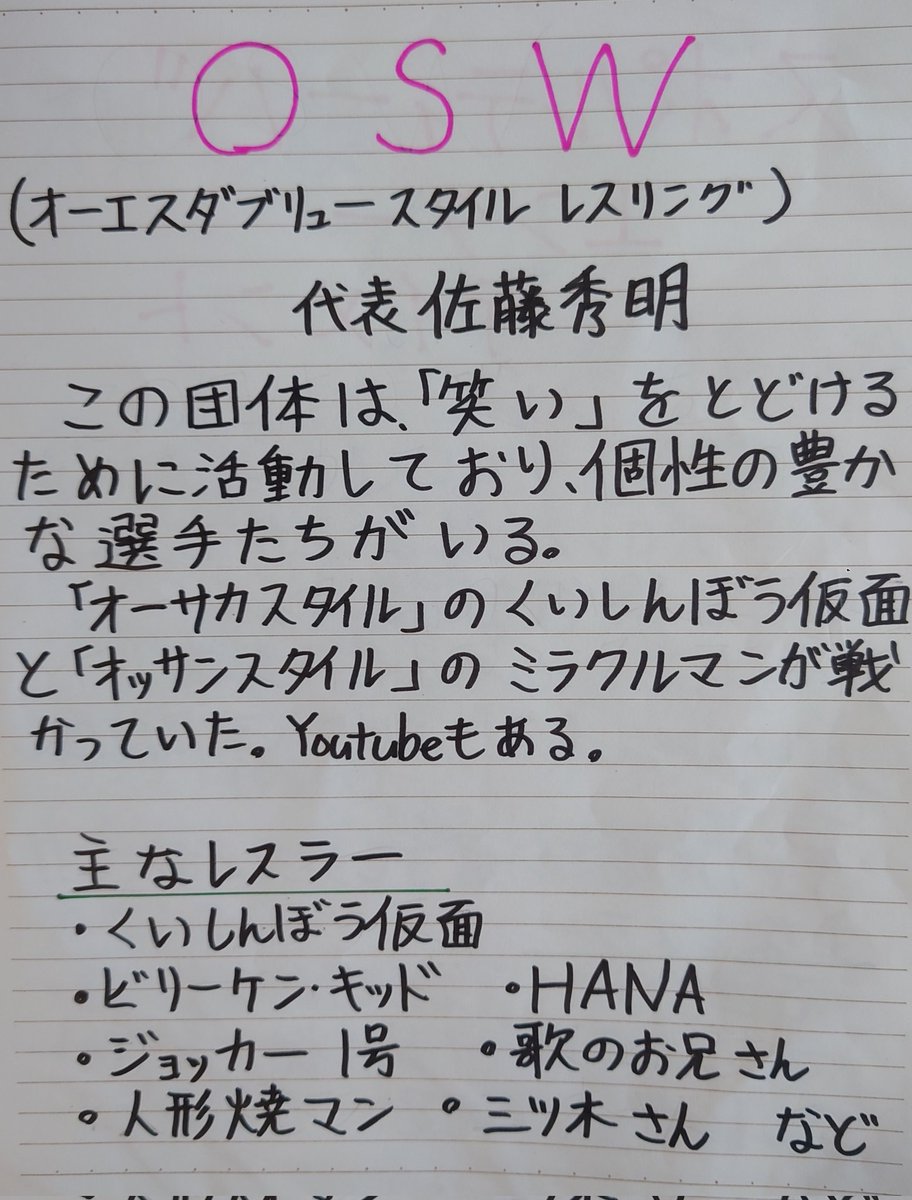 OSW
(オーエスダブリュースタイル レスリング)
代表 佐藤秀明
この団体は、「笑い」をとどける
ために活動しており、個性の豊か
な選手たちがいる。
「オーサカスタイル」のくいしんぼう仮面
と「オッサンスタイル」のミラクルマンが戦
かっていた。Youtubeもある。
主なレスラー
・くいしんぼう仮面
・ビリーケン・キッド ・HANA
・ジョッカー1号 ・歌のお兄さん
・人形焼マン ・三ツ木さん など